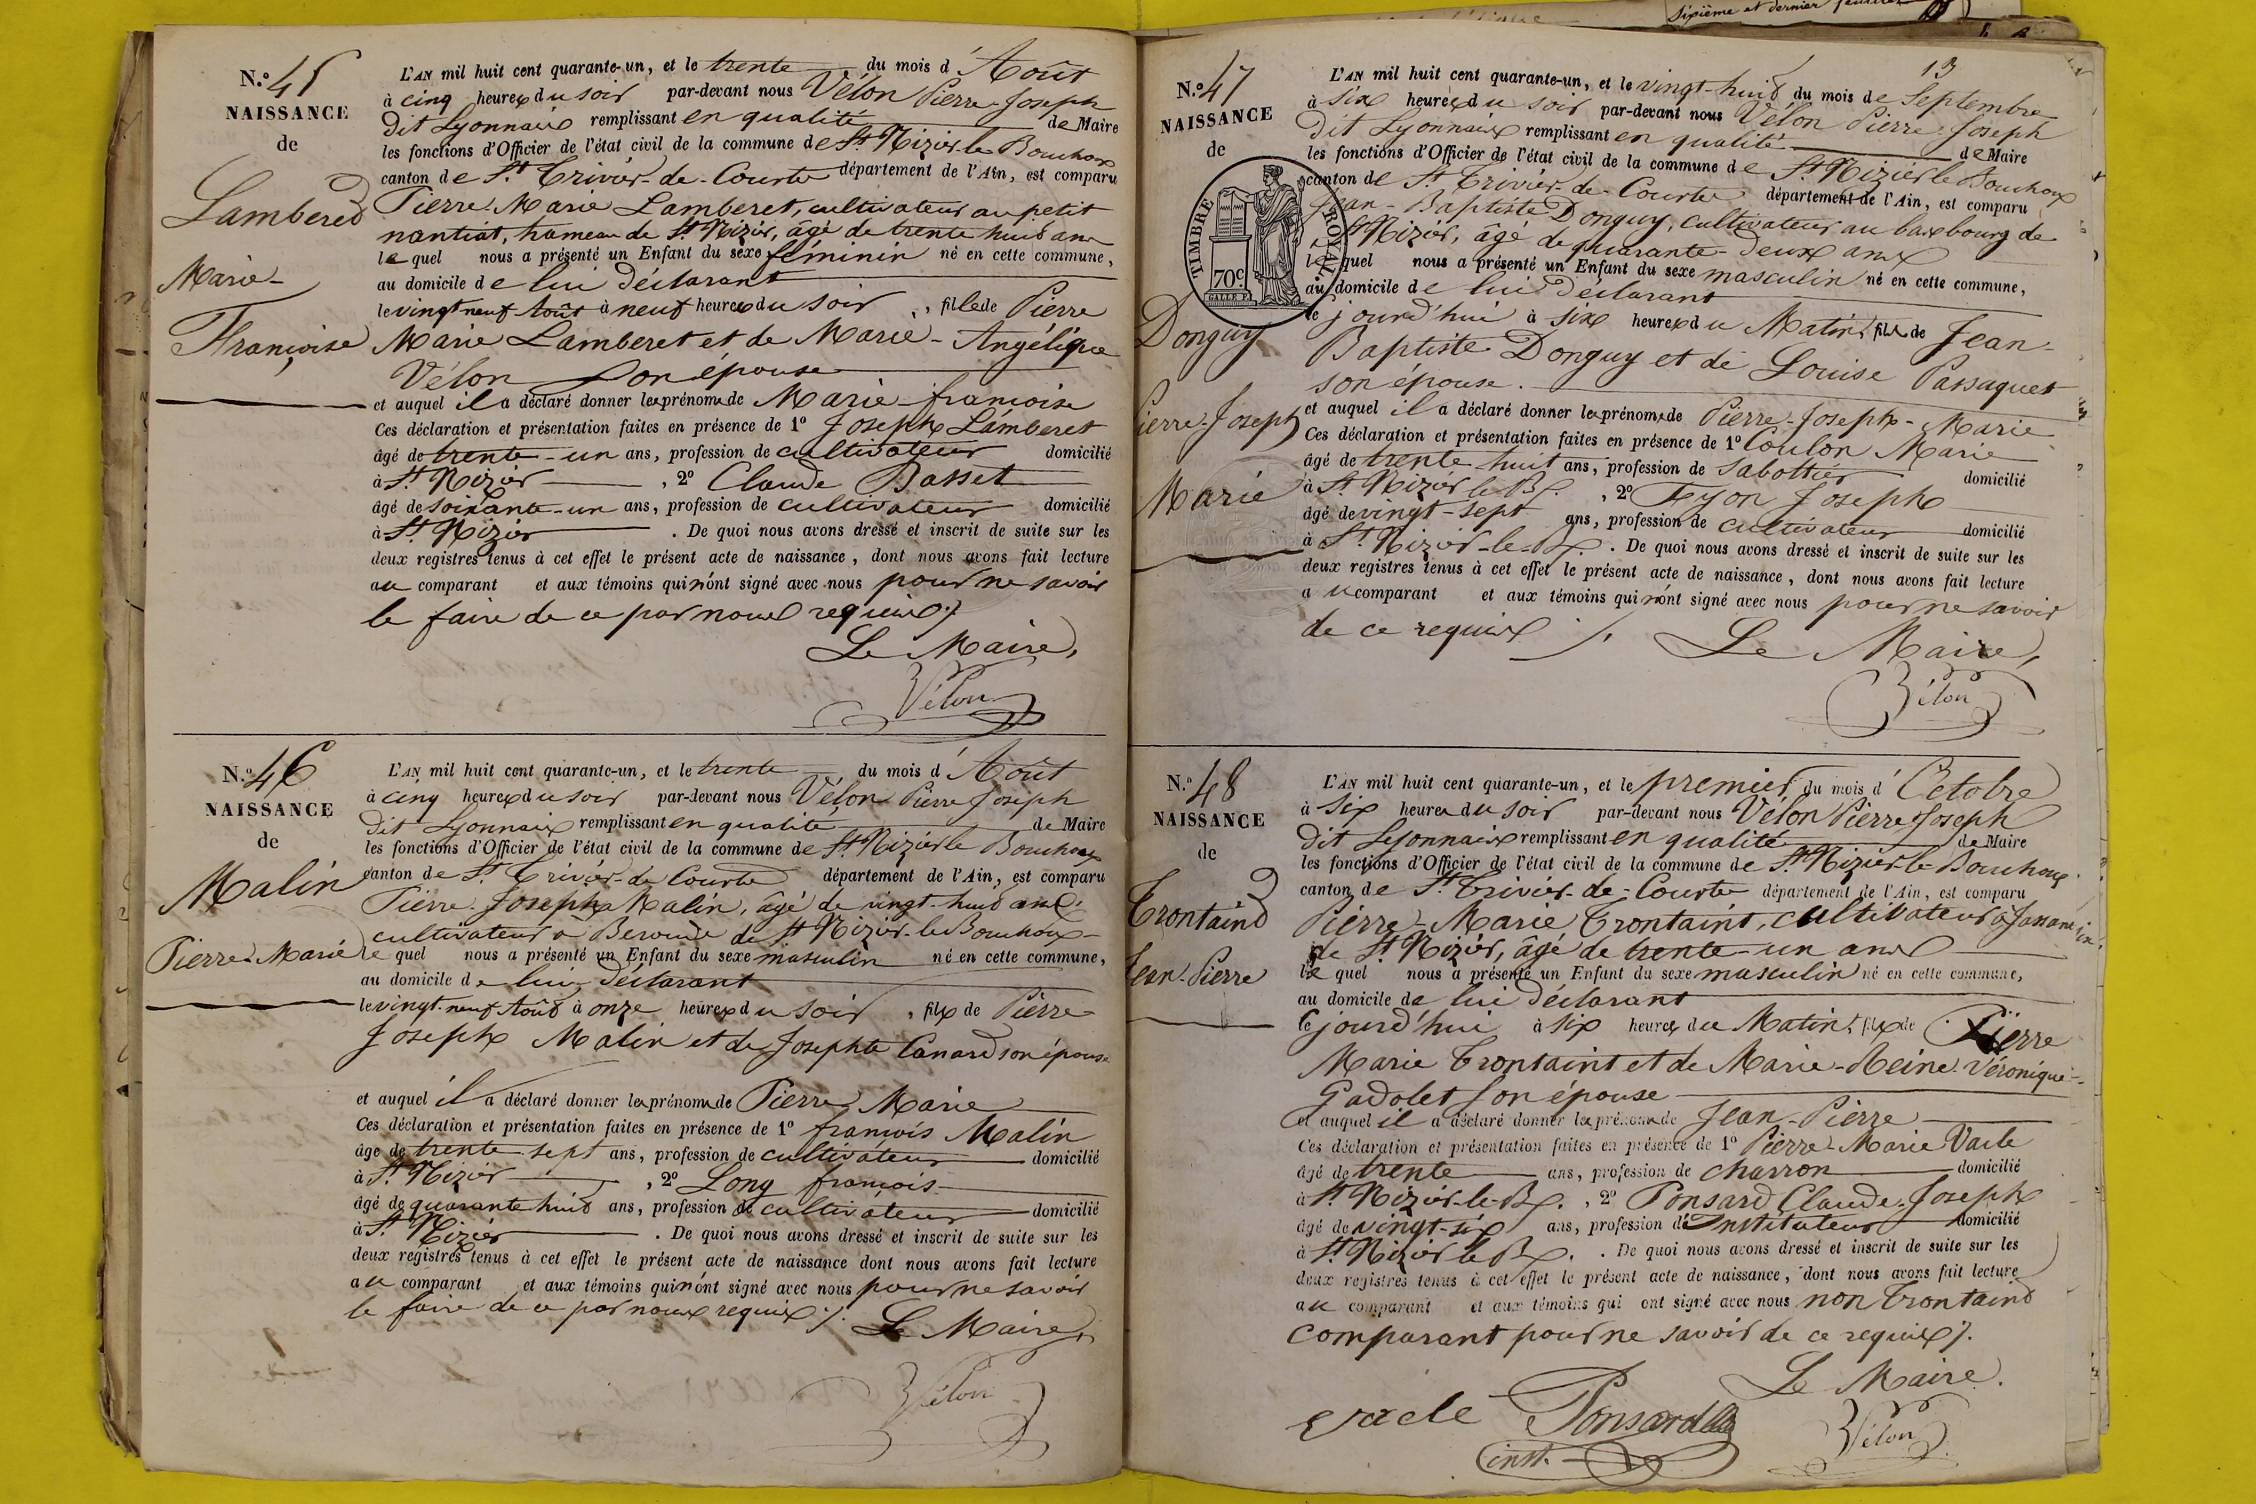 Sixième et dernier feuillet
N.o 45
NAISSANCE
de
Lamberet
Marie-
Françoise
L'AN mil huit cent quarante-un, et le trente du mois d'Août
à cinq heures du soir par-devant nous Vélon Pierre-Joseph
dit Lyonnais remplissant en qualité de Maire
les fonctions d'Officier de l'état civil de la commune de St Nizier le Bouchoux
canton de St. Trivier-de-Courte département de l'Ain, est comparu
Pierre-Marie Lamberet, cultivateur au petit
nantiat, hameau de St Nizier, âgé de trente huit ans
lequel nous a présenté un Enfant du sexe féminin né en cette commune,
au domicile de lui déclarant
le vingt neuf Août à neuf heures du soir, fille de Pierre
Marie Lamberet et de Marie-Angélique
Vélon son épouse
et auquel il a déclaré donner les prénoms de Marie-françoise
Ces déclaration et présentation faites en présence de 1o Joseph Lamberet
âgé de trente-un ans, profession de cultivateur domicilié
à St. Nizier, 2o Claude Basset
âgé de soixante-un ans, profession de cultivateur domicilié
à St. Nizier. De quoi nous avons dressé et inscrit de suite sur les
deux registres tenus à cet effet le présent acte de naissance, dont nous avons fait lecture
au comparant et aux témoins qui n'ont signé avec nous pour ne savoir
le faire de ce par nous requis./.
Le Maire,
Vélon
N.o 46
NAISSANCE
de
Malin
Pierre-Marie
L'AN mil huit cent quarante-un, et le trente du mois d'Août
à cinq heures du soir par-devant nous Vélon Pierre Joseph
dit Lyonnais remplissant en qualité de Maire
les fonctions d'Officier de l'état civil de la commune de St Nizier le Bouchoux
canton de St. Trivier-de-Courte département de l'Ain, est comparu
Pierre-Joseph Malin, âgé de vingt-huit ans,
cultivateur à de St Nizier-le-Bouchoux
lequel nous a présenté un Enfant du sexe masculin né en cette commune,
au domicile de lui déclarant
le vingt-neuf Août à onze heures du soir, fils de Pierre
Joseph Malin et de Josephte Canard son épouse
et auquel il a déclaré donner les prénoms de Pierre Marie
Ces déclaration et présentation faites en présence de 1o françois Malin
âge de trente-sept ans, profession de cultivateur domicilié
à St. Nizier, 2o Long françois
âgé de quarante huit ans, profession de cultivateur domicilié
à St. Nizier. De quoi nous avons dressé et inscrit de suite sur les
deux registres tenus à cet effet le présent acte de naissance dont nous avons fait lecture
au comparant et aux témoins qui n'ont signé avec nous pour ne savoir
le faire de ce par nous requis./. Le Maire,
Vélon
13
N.o 47
NAISSANCE
de
TIMBRE ROYAL
70c.
Donguy
Pierre-Joseph
Marie
L'AN mil huit cent quarante-un, et le vingt-huit du mois de Septembre
à six heures du soir par-devant nous Vélon Pierre-Joseph
dit Lyonnais remplissant en qualité de Maire
les fonctions d'Officier de l'état civil de la commune de St. Nizier le Bouchoux
canton de St Trivier-de-Courte département de l'Ain, est comparu
Jean-Baptiste Donguy, cultivateur au bas bourg de
St Nizier, âgé de quarante-deux ans
lequel nous a présenté un Enfant du sexe masculin né en cette commune,
au domicile de lui déclarant
le jourd'hui à six heures du Matin, fils de Jean-
Baptiste Donguy et de Louise Passaquet
son épouse.
et auquel il a déclaré donner les prénoms de Pierre-Joseph-Marie
Ces déclaration et présentation faites en présence de 1o Coulon Marie
âgé de trente huit ans, profession de sabottier domicilié
à St. Nizier le Bx., 2o Fyon Joseph
âgé de vingt-sept ans, profession de cultivateur domicilié
à St. Nizier-le-Bx.. De quoi nous avons dressé et inscrit de suite sur les
deux registres tenus à cet effet le présent acte de naissance, dont nous avons fait lecture
au comparant et aux témoins qui n'ont signé avec nous pour ne savoir
de ce requis ./. Le Maire,
Vélon
N.o 48
NAISSANCE
de
Trontaint
Jean-Pierre
L'AN mil huit cent quarante-un, et le premier du mois d'Octobre
à six heures du soir par-devant nous Vélon Pierre Joseph
dit Lyonnais remplissant en qualité de Maire
les fonctions d'Officier de l'état civil de la commune de St. Nizier-le-Bouchoux
canton de St Trivier-de-Courte département de l'Ain, est comparu
Pierre-Marie Trontaint, cultivateur à
de St. Nizier, âgé de trente-un ans
lequel nous a présenté un Enfant du sexe masculin né en cette commune,
au domicile de lui déclarant
le jourd'hui à six heures du Matin, fils de Pierre
Marie Trontaint et de Marie-Reine-Véronique
Gadolet son épouse
et auquel il a déclaré donner les prénoms de Jean-Pierre
Ces déclaration et présentation faites en présence de 1o Pierre-Marie Vacle
âgé de trente ans, profession de charron domicilié
à St. Nizier-le-Bx., 2o Ponsard Claude-Joseph
âgé de vingt-six ans, profession d'Instituteur domicilié
à St. Nizier le Bx.. De quoi nous avons dressé et inscrit de suite sur les
deux registres tenus à cet effet le présent acte de naissance, dont nous avons fait lecture
au comparant et aux témoins qui ont signé avec nous non Trontaint
comparant pour ne savoir de ce requis./.
Le Maire.
vacle Ponsard
inst. Vélon